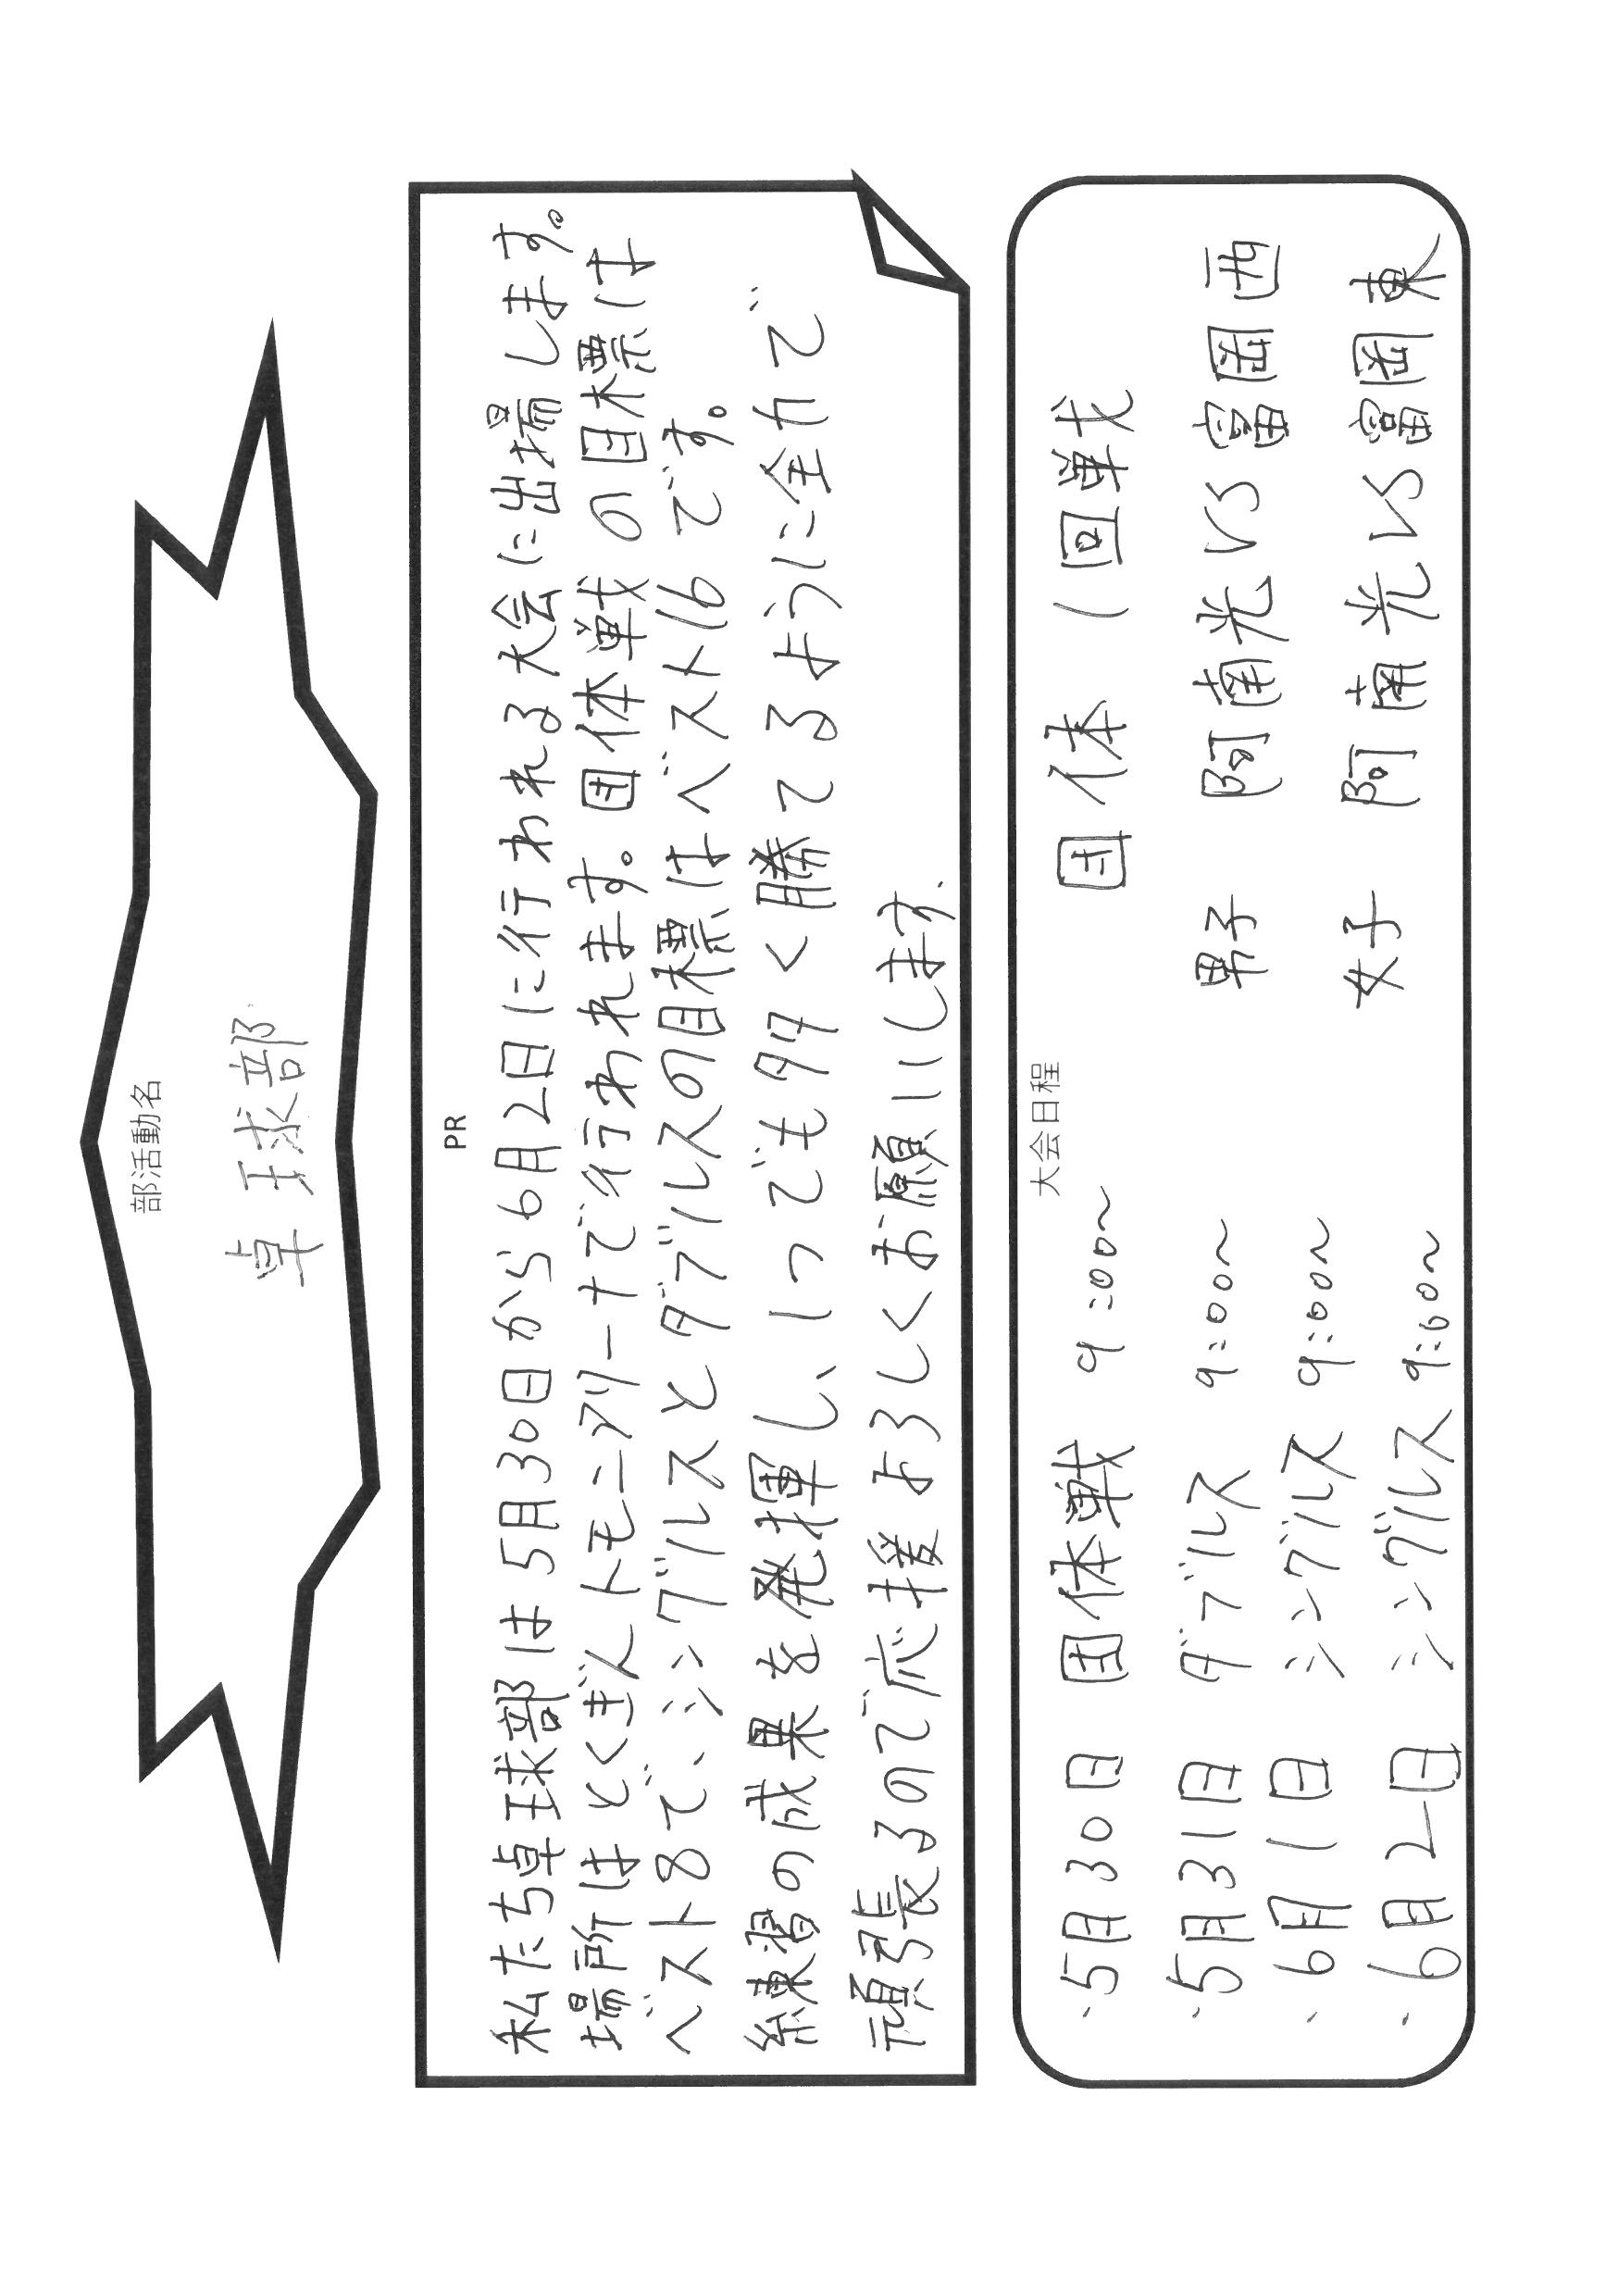 部活動名
卓球部
PR
私たち卓球部は5月30日から6月2日に行われる大会に出場します。
場所はとくぎんトモニアリーナで行われます。団体戦の目標は
ベスト8で、シングルスとダブルスの目標はベスト16です。
練習の成果を発揮し、1つでも多く勝てるように全力で
頑張るので応援よろしくお願いします。
大会日程
・5月30日 団体戦 9:00～
・5月31日 ダブルス 9:00～
・6月1日 シングルス 9:00～
・6月2日 シングルス 9:00～
団体 1回戦
男子 阿南光VS富岡西
女子 阿南光VS富岡東